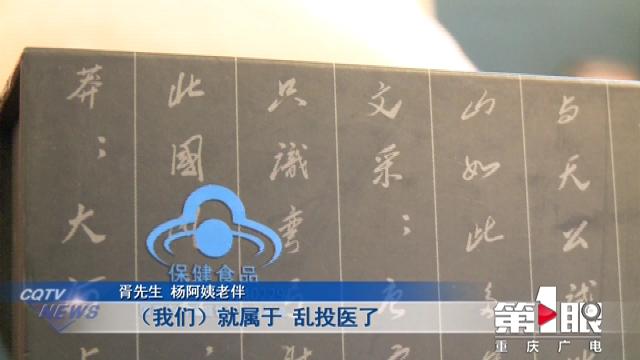 与天公試
山如此多
文采；唐
只識彎
此國
莽；大河上
保健食品
CQTV
NEWS
胥先生 杨阿姨老伴
（我们）就属于 乱投医了
第1眼
重庆广电